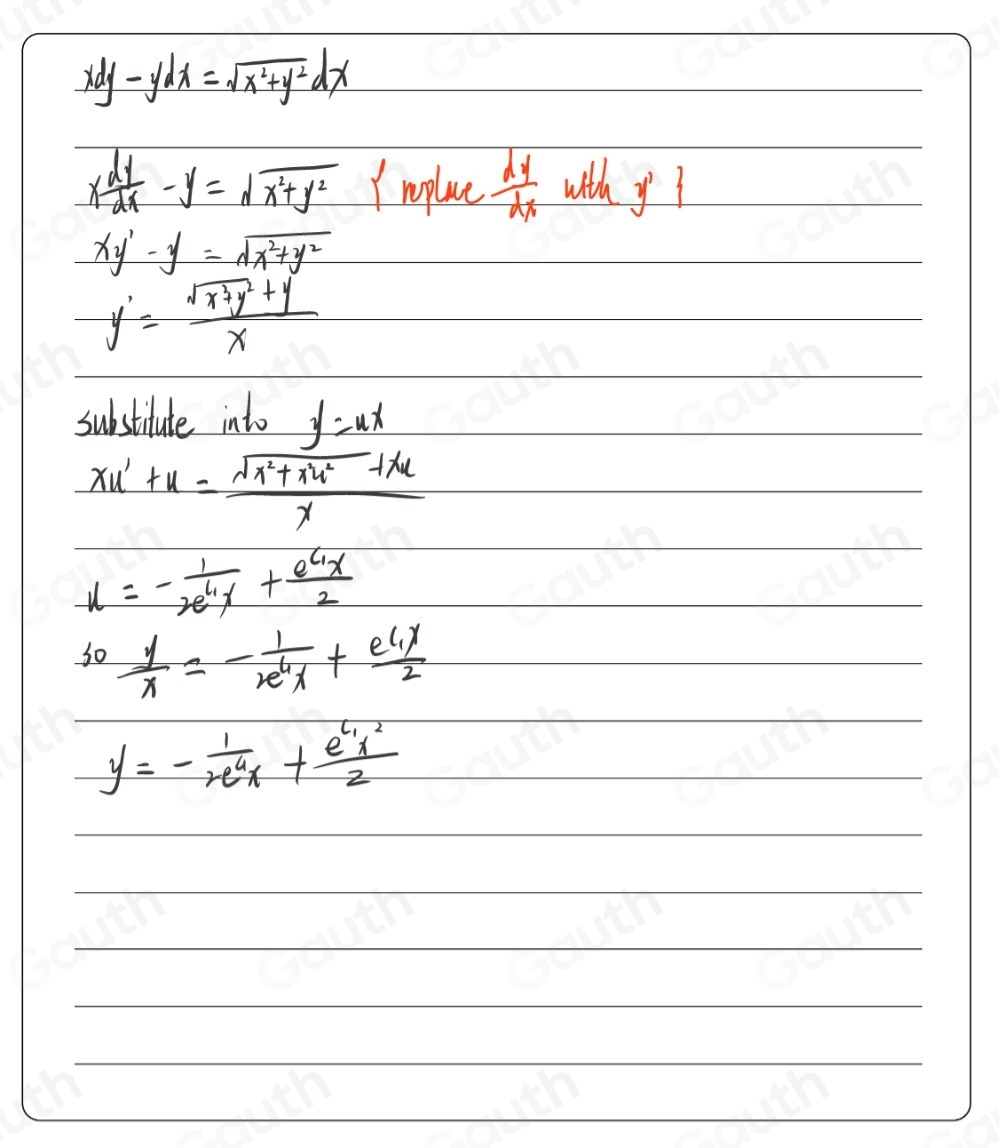 xdy - ydx = √(x²+y²) dx
x dy/dx - y = √(x²+y²) { replace dy/dx with y' }
xy' - y = √(x²+y²)
y' = (√(x²+y²) + y)/x
substitute into y = ux
xu' + u = (√(x²+x²u²) + xu)/x
u = - 1/(2e^(C₁)x) + (e^(C₁)x)/2
so y/x = - 1/(2e^(C₁)x) + (e^(C₁)x)/2
y = - 1/(2e^(C₁)x) + (e^(C₁)x²)/2